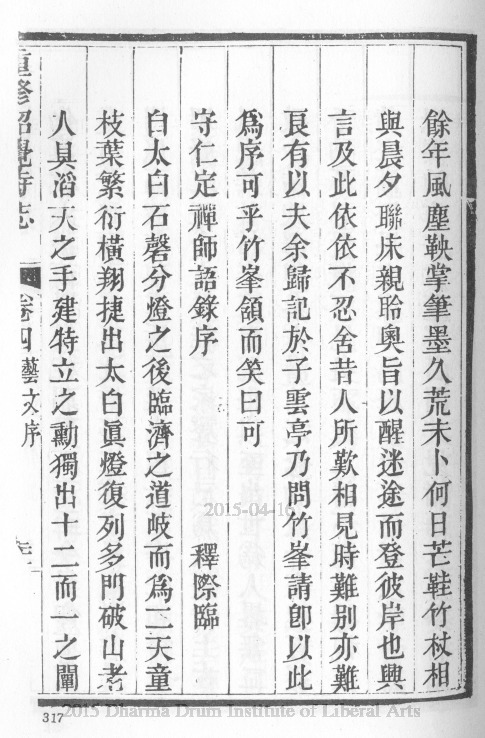 餘年風塵鞅掌筆墨久荒未卜何日芒鞋竹杖相
與晨夕聯床親聆奥旨以醒迷途而登彼岸也興
言及此依依不忍舍昔人所歎相見時難別亦難
良有以夫余歸記於子雲亭乃問竹峯請卽以此
爲序可乎竹峯頷而笑曰可
守仁定禪師語錄序 釋際臨
自太白石磬分燈之後臨濟之道岐而爲二天童
枝葉繁衍橫翔捷出太白眞燈復列多門破山老
人具滔天之手建特立之勳獨出十二而一之闡
重修昭覺寺志 卷四 藝文序
317
2015-04-16
2015 Dharma Drum Institute of Liberal Arts